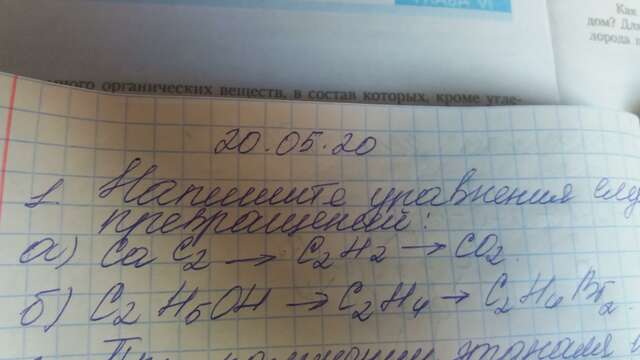 Как
дом? Для
лорода п
органических веществ, в состав которых, кроме угле-
20.05.20
1. Напишите уравнения след
превращений:
а) CaC₂ → C₂H₂ → CO₂.
б) C₂H₅OH → C₂H₄ → C₂H₄Br₂.